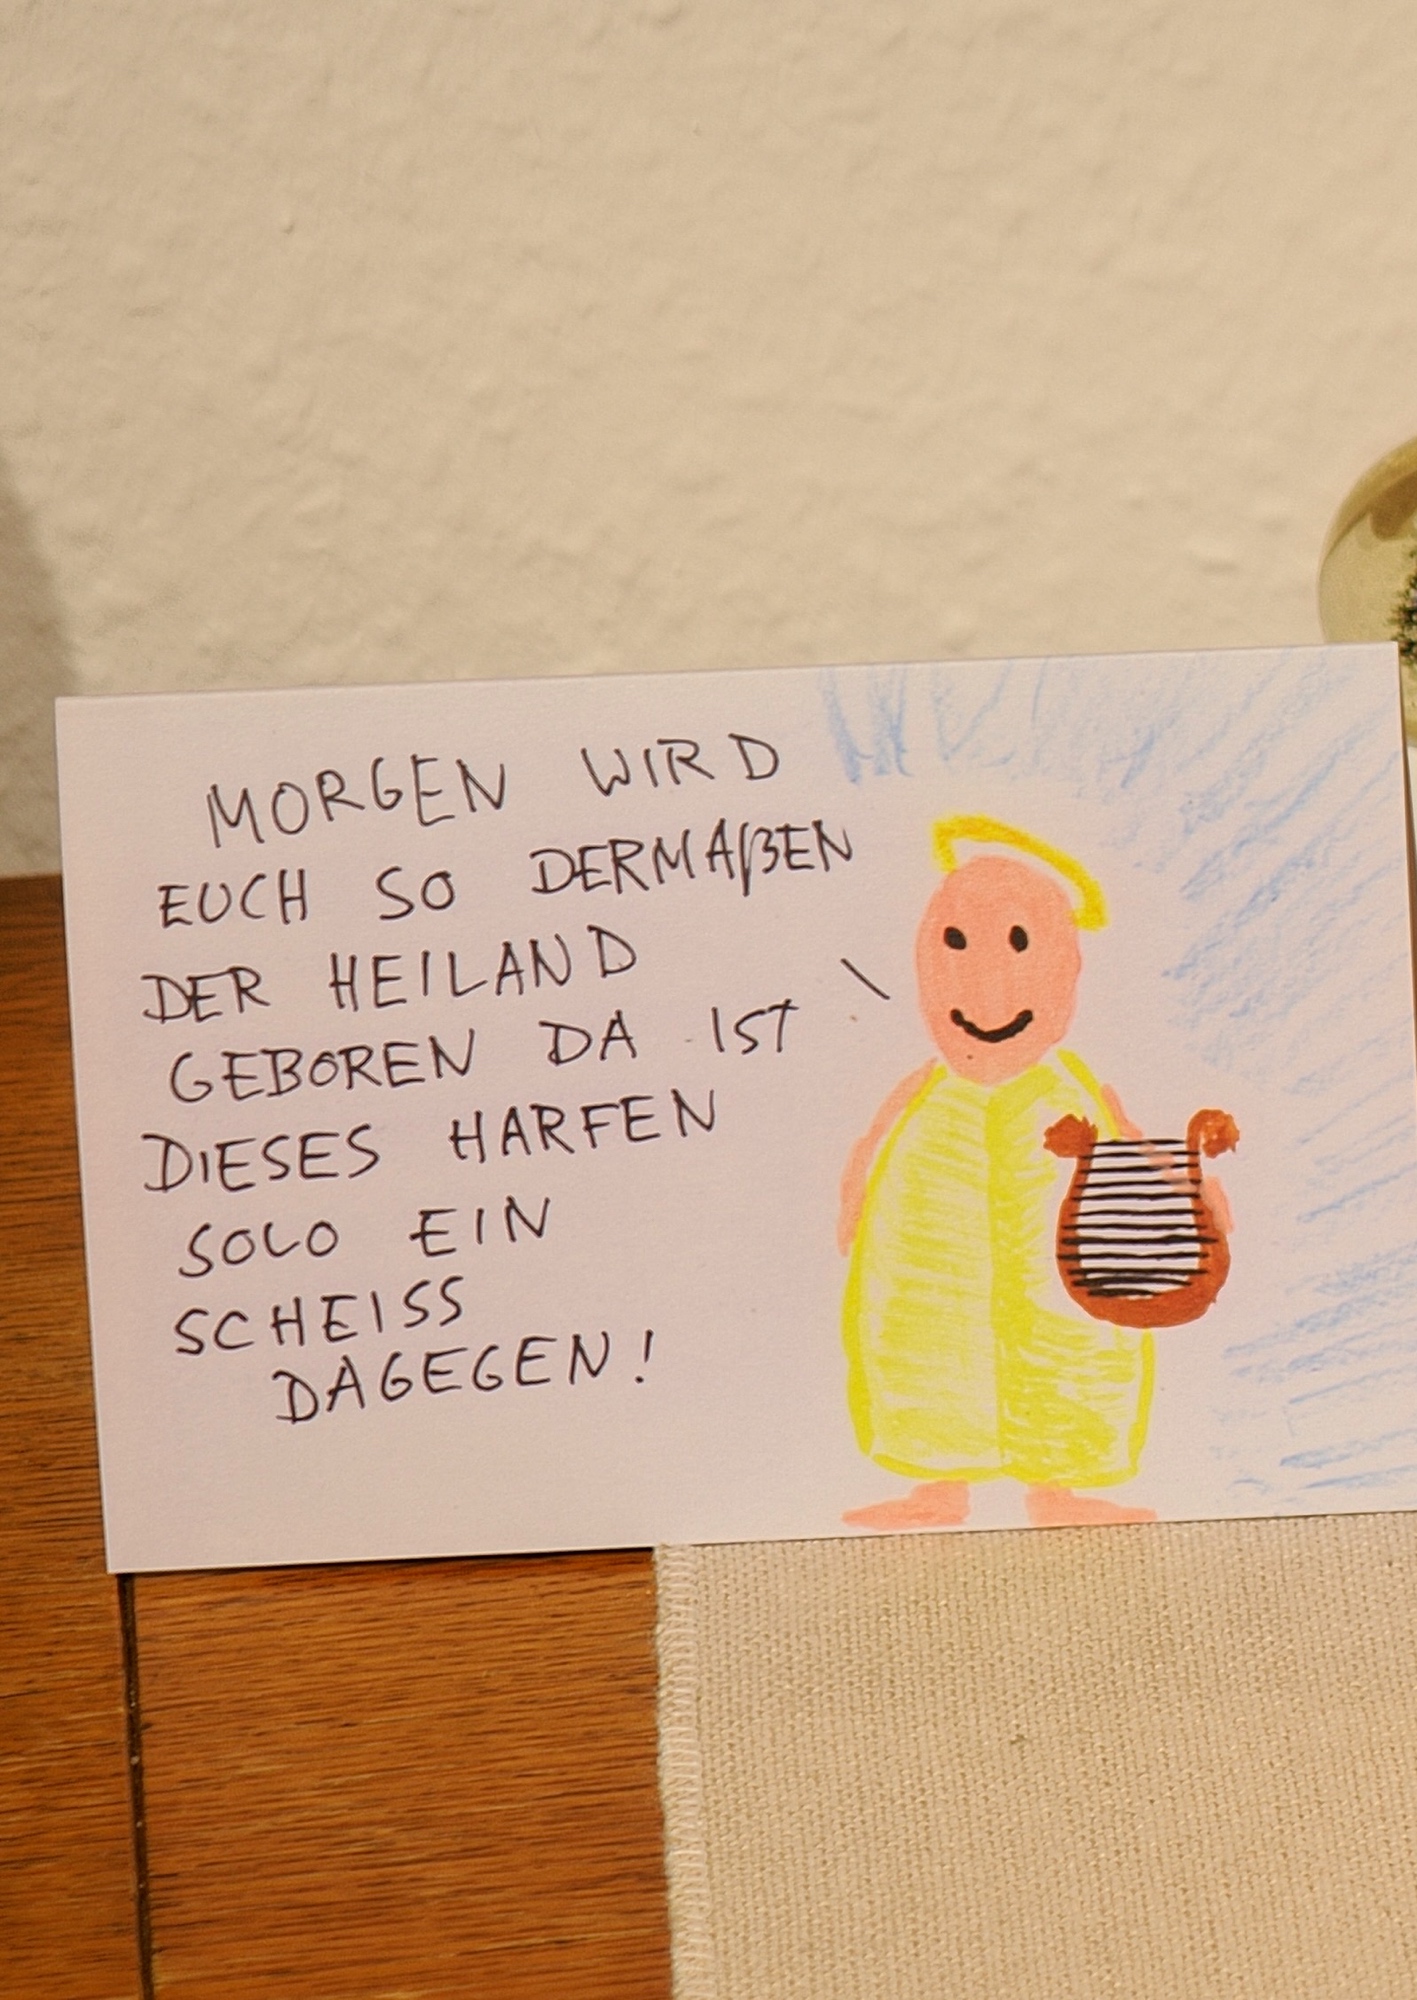 MORGEN WIRD
EUCH SO DERMAßEN
DER HEILAND
GEBOREN DA IST
DIESES HARFEN
SOLO EIN
SCHEISS
DAGEGEN!